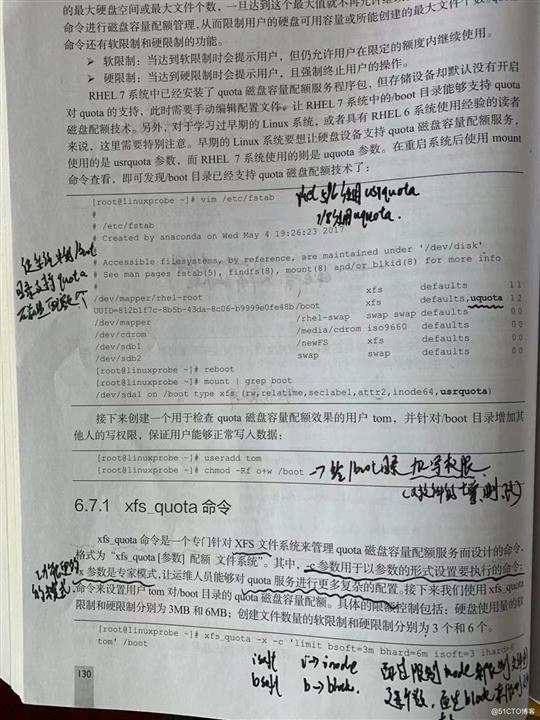 的最大硬盘空间或最大文件个数，一旦达到这个最大值就不再允许继
命令进行磁盘容量配额管理，从而限制用户的硬盘可用容量或所能创建的最大文件个数。
命令还有软限制和硬限制的功能。
➢ 软限制：当达到软限制时会提示用户，但仍允许用户在限定的额度内继续使用。
➢ 硬限制：当达到硬限制时会提示用户，且强制终止用户的操作。
RHEL 7 系统中已经安装了 quota 磁盘容量配额服务程序包，但存储设备却默认没有开启
对 quota 的支持，此时需要手动编辑配置文件。让 RHEL 7 系统中的/boot 目录能够支持 quota
磁盘配额技术。另外，对于学习过早期的 Linux 系统，或者具有 RHEL 6 系统使用经验的读者
来说，这里需要特别注意。早期的 Linux 系统要想让硬盘设备支持 quota 磁盘容量配额服务，
使用的是 usrquota 参数，而 RHEL 7 系统使用的则是 uquota 参数。在重启系统后使用 mount
命令查看，即可发现/boot 目录已经支持 quota 磁盘配额技术了：
[root@linuxprobe ~]# vim /etc/fstab
5/6 用 usrquota
7/8 用 uquota.
#
# /etc/fstab
# Created by anaconda on Wed May 4 19:26:23 2017
#
# Accessible filesystems, by reference, are maintained under '/dev/disk'
# See man pages fstab(5), findfs(8), mount(8) and/or blkid(8) for more info
#
/dev/mapper/rhel-root xfs defaults 1 1
UUID=812b1f7c-8b5b-43da-8c06-b9999e0fe48b /boot xfs defaults,uquota 1 2
/dev/mapper /rhel-swap swap swap defaults 0 0
/dev/cdrom /media/cdrom iso9660 defaults 0 0
/dev/sdb1 /newFS xfs defaults 0 0
/dev/sdb2 swap swap defaults 0 0
[root@linuxprobe ~]# reboot
[root@linuxprobe ~]# mount | grep boot
/dev/sda1 on /boot type xfs (rw,relatime,seclabel,attr2,inode64,usrquota)
接下来创建一个用于检查 quota 磁盘容量配额效果的用户 tom，并针对/boot 目录增加其
他人的写权限，保证用户能够正常写入数据：
[root@linuxprobe ~]# useradd tom
[root@linuxprobe ~]# chmod -Rf o+w /boot
→给/boot目录 加写权限
6.7.1 xfs_quota 命令
xfs_quota 命令是一个专门针对 XFS 文件系统来管理 quota 磁盘容量配额服务而设计的命令，
格式为“xfs_quota [参数] 配额 文件系统”。其中，-c 参数用于以参数的形式设置要执行的命令；
-x 参数是专家模式，让运维人员能够对 quota 服务进行更多复杂的配置。接下来我们使用 xfs_quota
命令来设置用户 tom 对/boot 目录的 quota 磁盘容量配额。具体的限额控制包括：硬盘使用量的软
限制和硬限制分别为 3MB 和 6MB；创建文件数量的软限制和硬限制分别为 3 个和 6 个。
[root@linuxprobe ~]# xfs_quota -x -c 'limit bsoft=3m bhard=6m isoft=3 ihard=6
tom' /boot
isoft i→inode
bsoft b→block
130
@51CTO博客